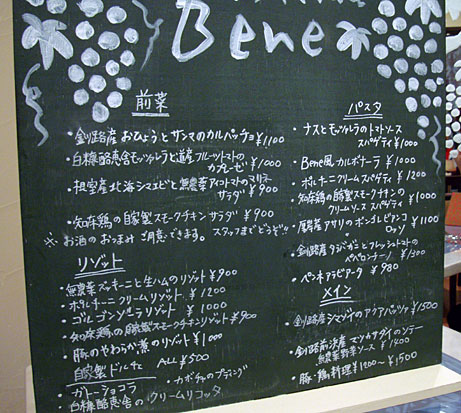 Bene
前菜
・釧路産おひょうとサンマのカルパッチョ ¥1100
・白糠酪恵舎モッツァレラと道産フルーツトマトの
カプレーゼ ¥1000
・根室産北海シマエビと無農薬アイコトマトのマリネ
サラダ ¥900
・知床鶏の自家製スモークチキンサラダ ¥900
※お酒のおつまみご用意できます。スタッフまでどうぞ!!
リゾット
・無農薬ズッキーニと生ハムのリゾット ¥900
・ポルチーニクリームリゾット ¥1200
・ゴルゴンゾーラリゾット ¥1000
・知床鶏の自家製スモークチキンリゾット ¥900
・豚のやわらか煮のリゾット ¥1000
自家製ドルチェ ALL ¥500
・ガトーショコラ ・カボチャのプリン
・白糠酪恵舎のクリームリコッタ
パスタ
・ナスとモッツァレラのトマトソース
スパゲティ ¥1000
・Bene風カルボナーラ ¥1000
・ポルチーニクリームスパゲティ ¥1200
・知床鶏の自家製スモークチキンの
クリームソーススパゲティ ¥1000
・尾岱産アサリのボンゴレビアンコ
ロッソ ¥1100
・釧路産タラバガニとフレッシュトマトの
ペペロンチーノ ¥1300
・ペンネアラビアータ ¥980
メイン
・釧路産シマゾイのアクアパッツァ ¥1500
・釧路前浜産マツカワダイのソテー
無農薬野菜ソース ¥1400
・豚・鶏料理 ¥1200〜¥1500